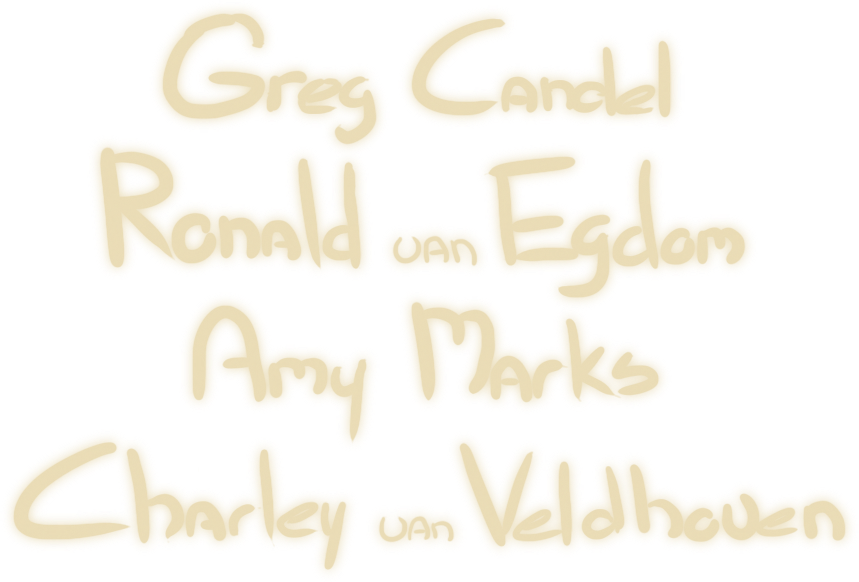 Greg Candel
Ronald van Egdom
Amy Marks
Charley van Veldhoven